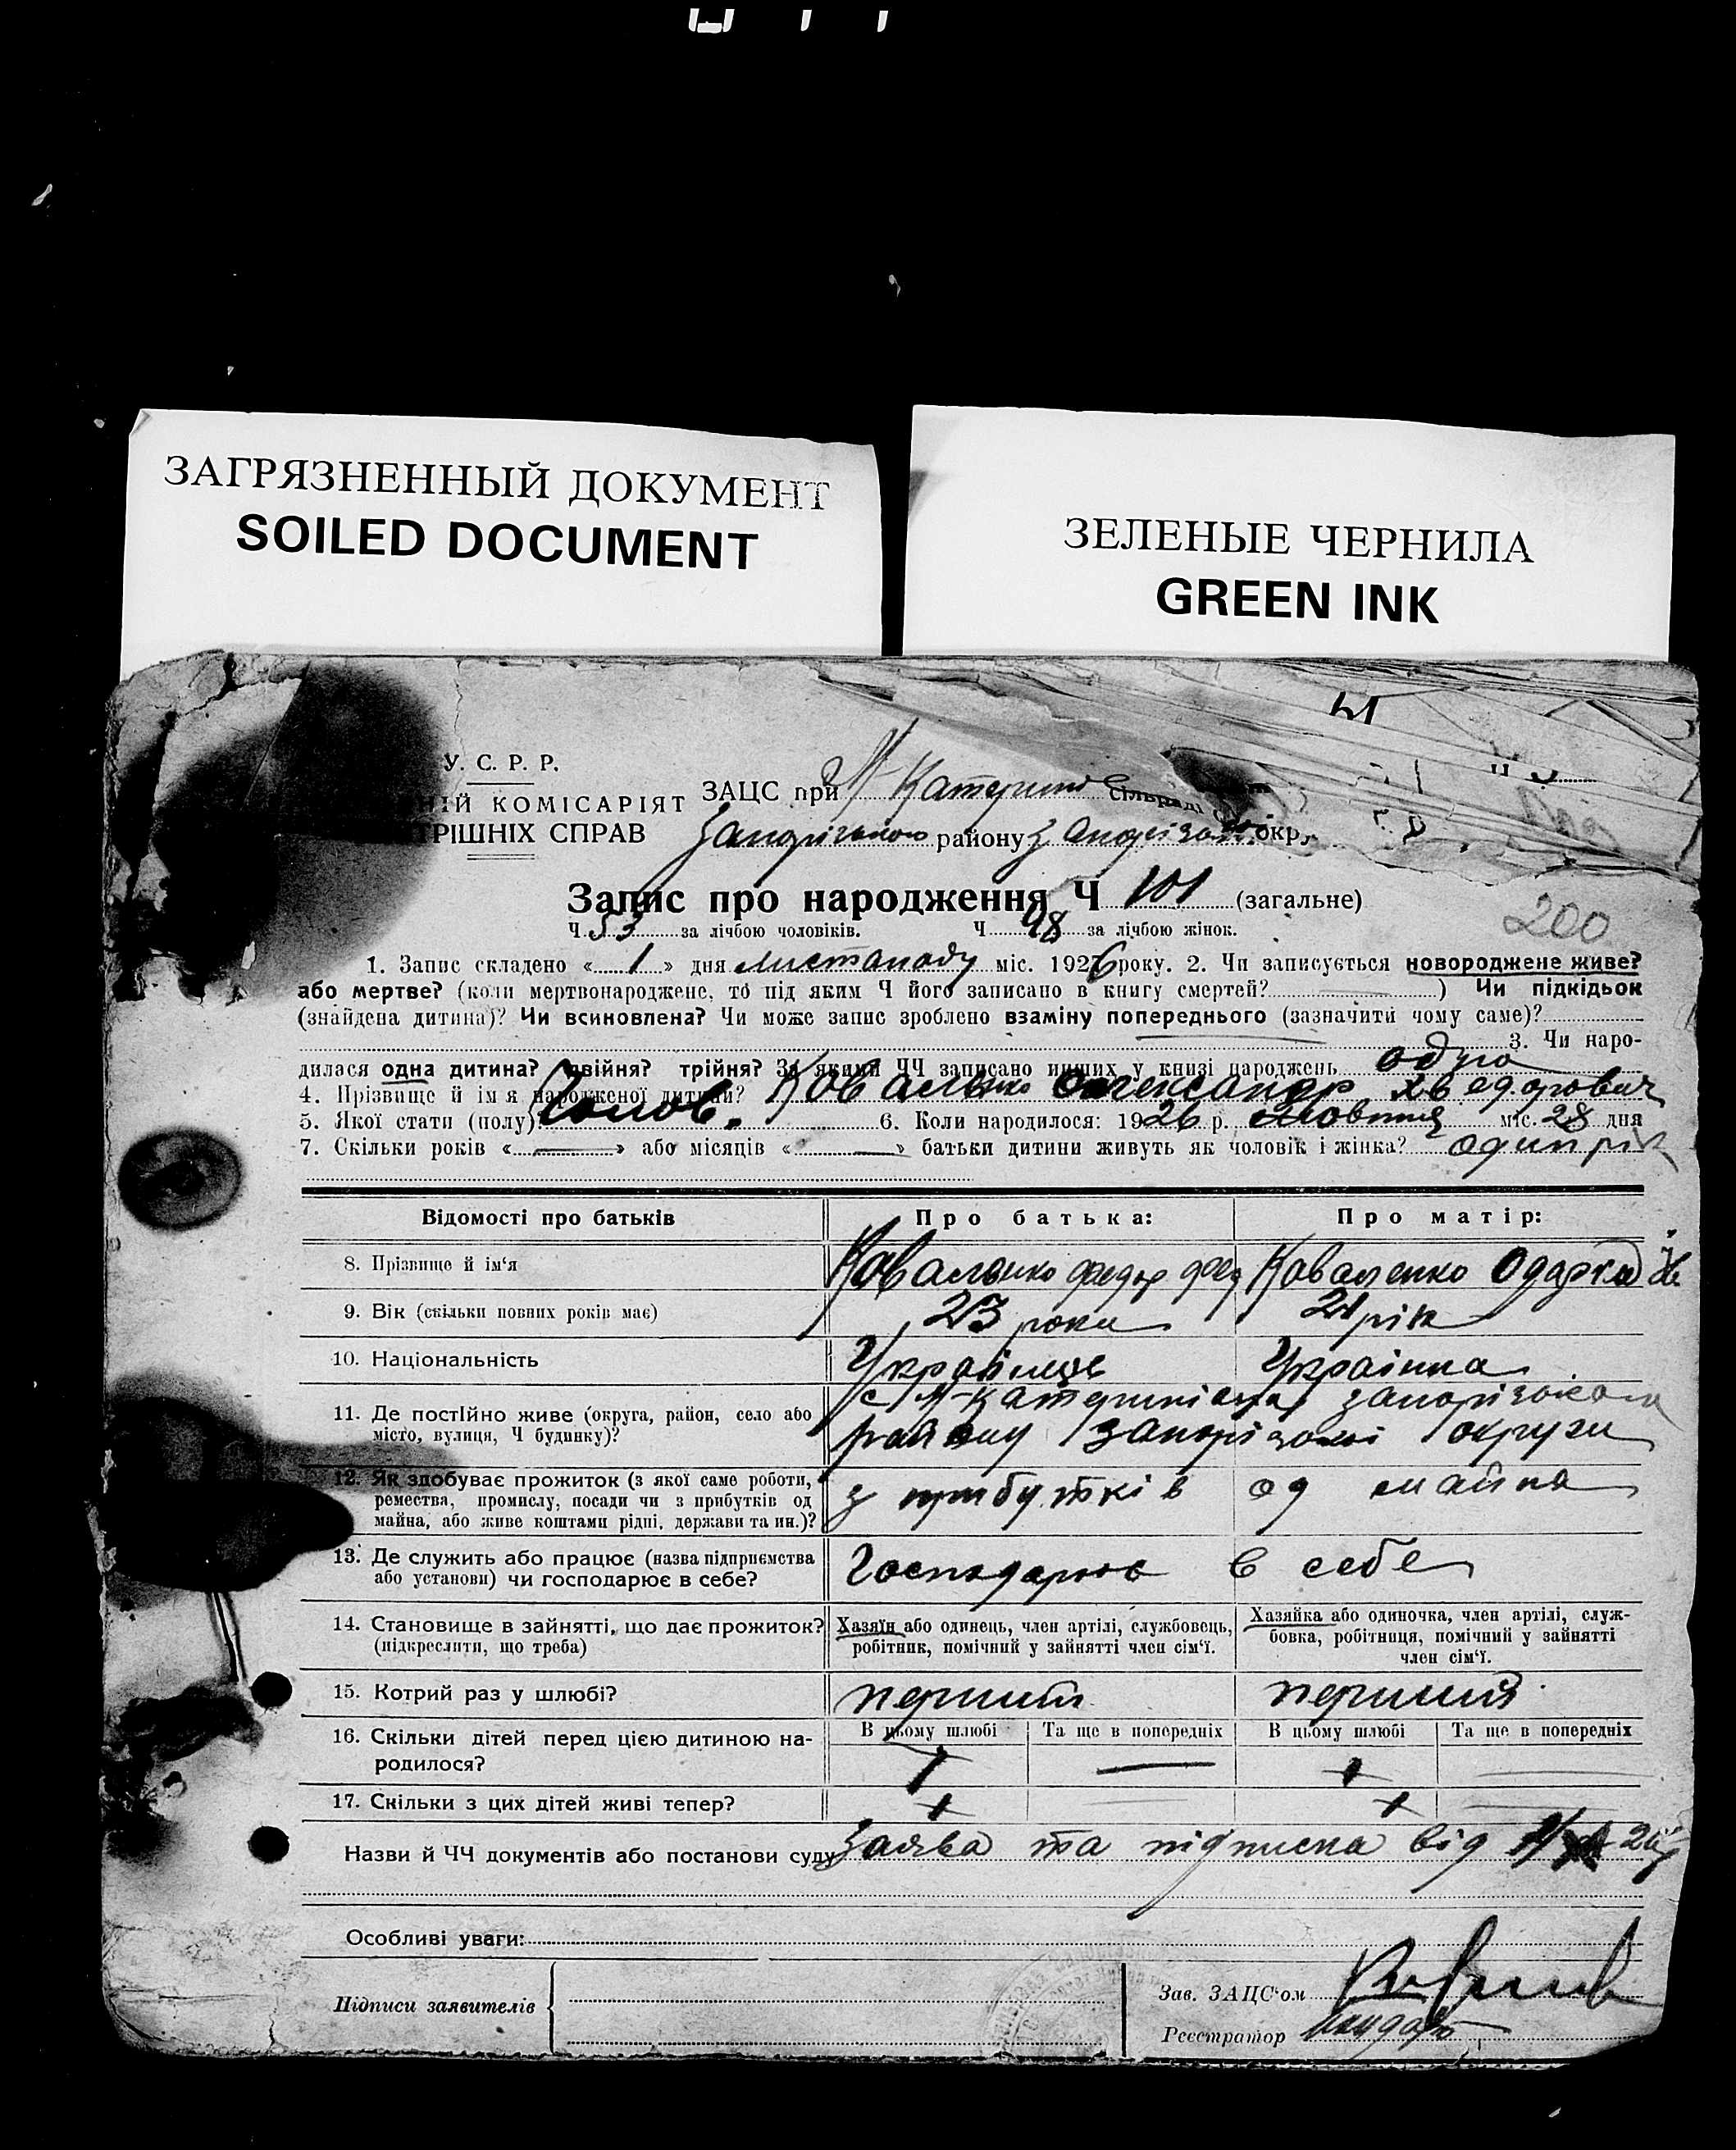 ЗАГРЯЗНЕННЫЙ ДОКУМЕНТ
SOILED DOCUMENT
ЗЕЛЕНЫЕ ЧЕРНИЛА
GREEN INK
У. С. Р. Р.
НІЙ КОМІСАРІЯТ
ТРІШНІХ СПРАВ
ЗАЦС при Катерині сільраді
Запорізького району Запорізької окр
Запис про народження Ч 101 (загальне)
200
Ч 53 за лічбою чоловіків. Ч 48 за лічбою жінок.
1. Запис складено « 1 » дня листопаду міс. 1926 року. 2. Чи записується новороджене живе?
або мертве? (коли мертвонароджене, то під яким Ч його записано в книгу смертей? ) Чи підкідьок
(знайдена дитина)? Чи всиновлена? Чи може запис зроблено взаміну попереднього (зазначити чому саме)?
3. Чи наро-
дилася одна дитина? двійня? трійня? За якими ЧЧ записано инших у книзі народжень одна
4. Прізвище й ім'я народженої дитини? Коваленко Олександр Хведорович
5. Якої стати (полу) Чолов. 6. Коли народилося: 1926 р. Жовтня міс. 28 дня
7. Скільки років « — » або місяців « — » батьки дитини живуть як чоловік і жінка? один рік
Відомості про батьків Про батька: Про матір:
8. Прізвище й ім'я Коваленко Федір Фед Коваленко Одарка
9. Вік (скільки повних років має) 23 роки 21 рік
10. Національність Українець Українка
11. Де постІйно живе (округа, район, село або
місто, вулиця, Ч будинку)?
с М-Катеринівка запорізького
району Запорізької округи
12. Як здобуває прожиток (з якої саме роботи,
ремества, промислу, посади чи з прибутків од
майна, або живе коштами рідні, держави та ин.)?
з прибутків од майна
13. Де служить або працює (назва підприємства
або установи) чи господарює в себе?
Господарює в себе
14. Становище в зайнятті, що дає прожиток?
(підкреслити, що треба)
Хазяїн або одинець, член артілі, службовець,
робітник, помічний у зайнятті член сім'ї.
Хазяйка або одиночка, член артілі, служ-
бовка, робітниця, помічний у зайнятті
член сім'ї.
15. Котрий раз у шлюбі? перший перший
16. Скільки дітей перед цією дитиною на-
родилося?
В цьому шлюбі Та ще в попередніх В цьому шлюбі Та ще в попередніх
17. Скільки з цих дітей живі тепер?
Назви й ЧЧ документів або постанови суду Заява та підписка від
Особливі уваги:
Підписи заявителів
Зав. ЗАЦС'ом
Реєстратор